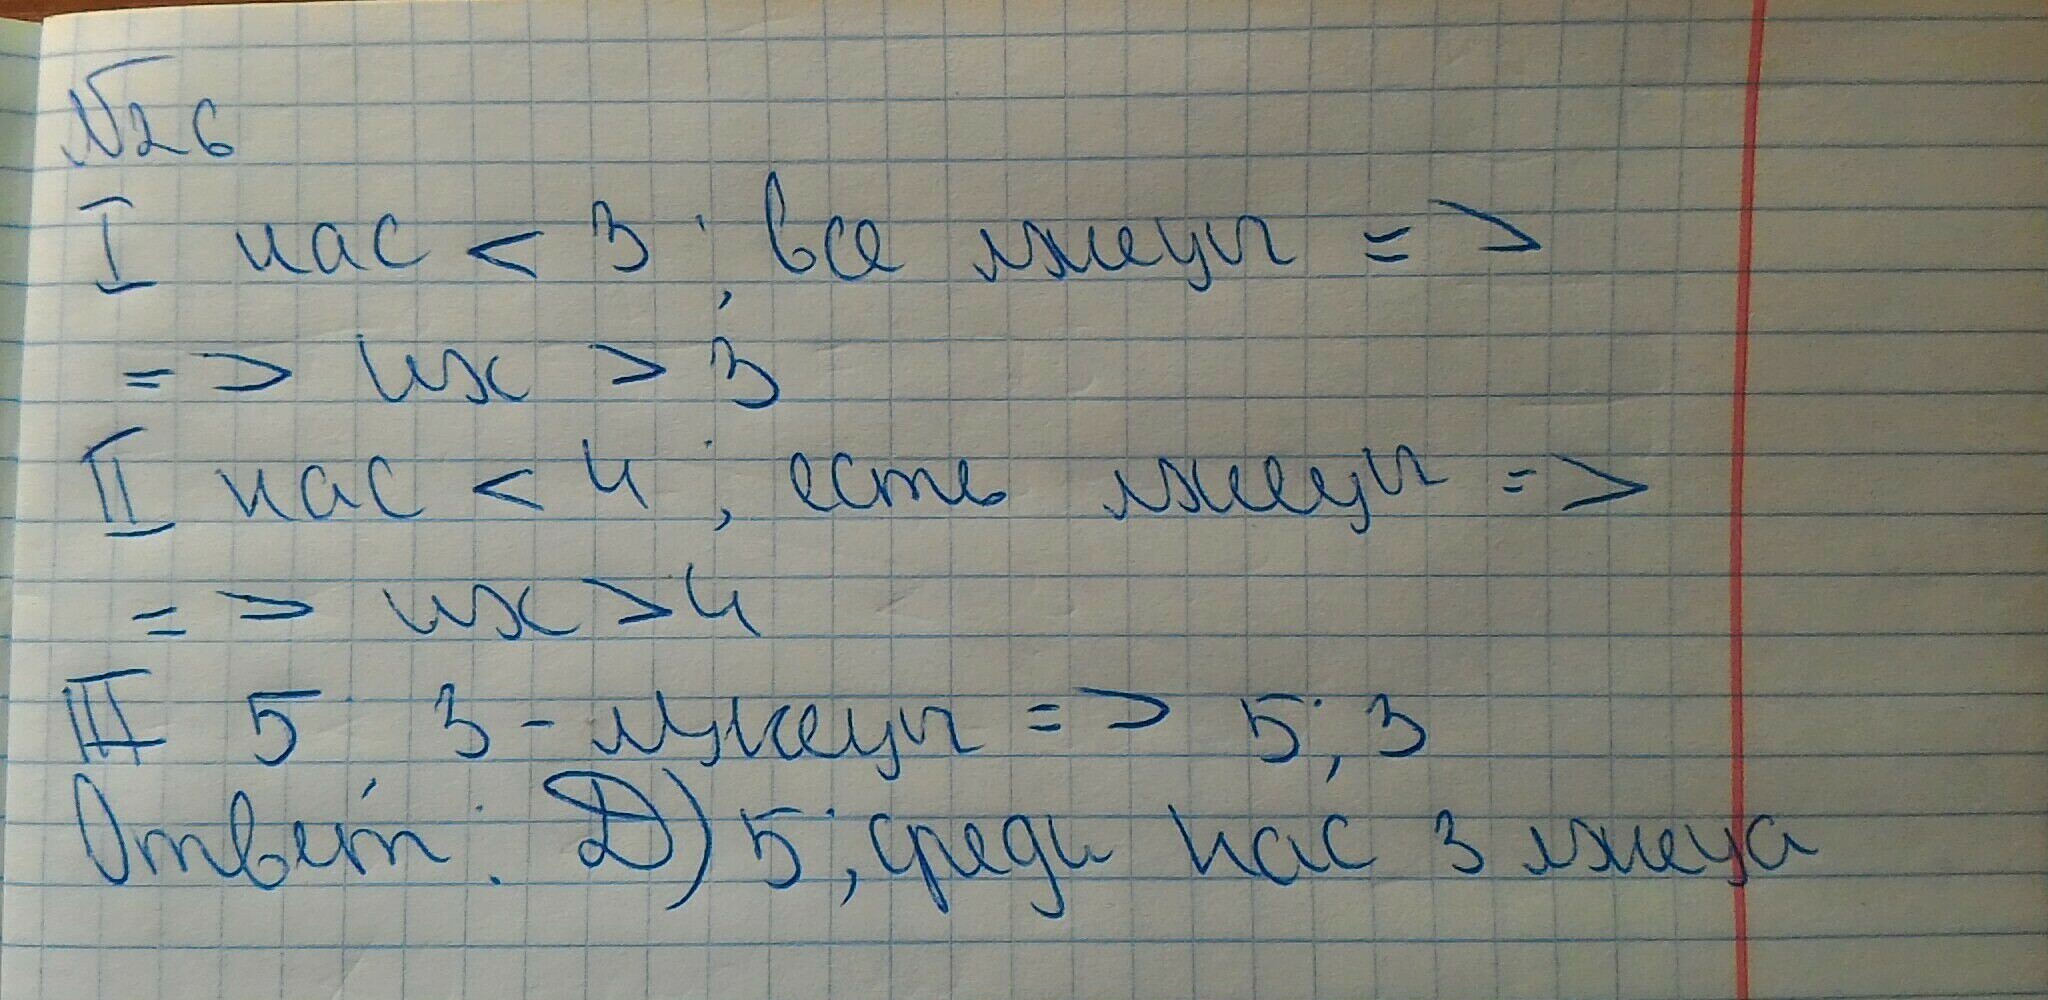 №26
I нас < 3; все лжецы =>
=> их > 3
II нас < 4; есть лжецы =>
=> их > 4
III 5 3 - лжецы => 5; 3
Ответ: Д) 5; среди нас 3 лжеца